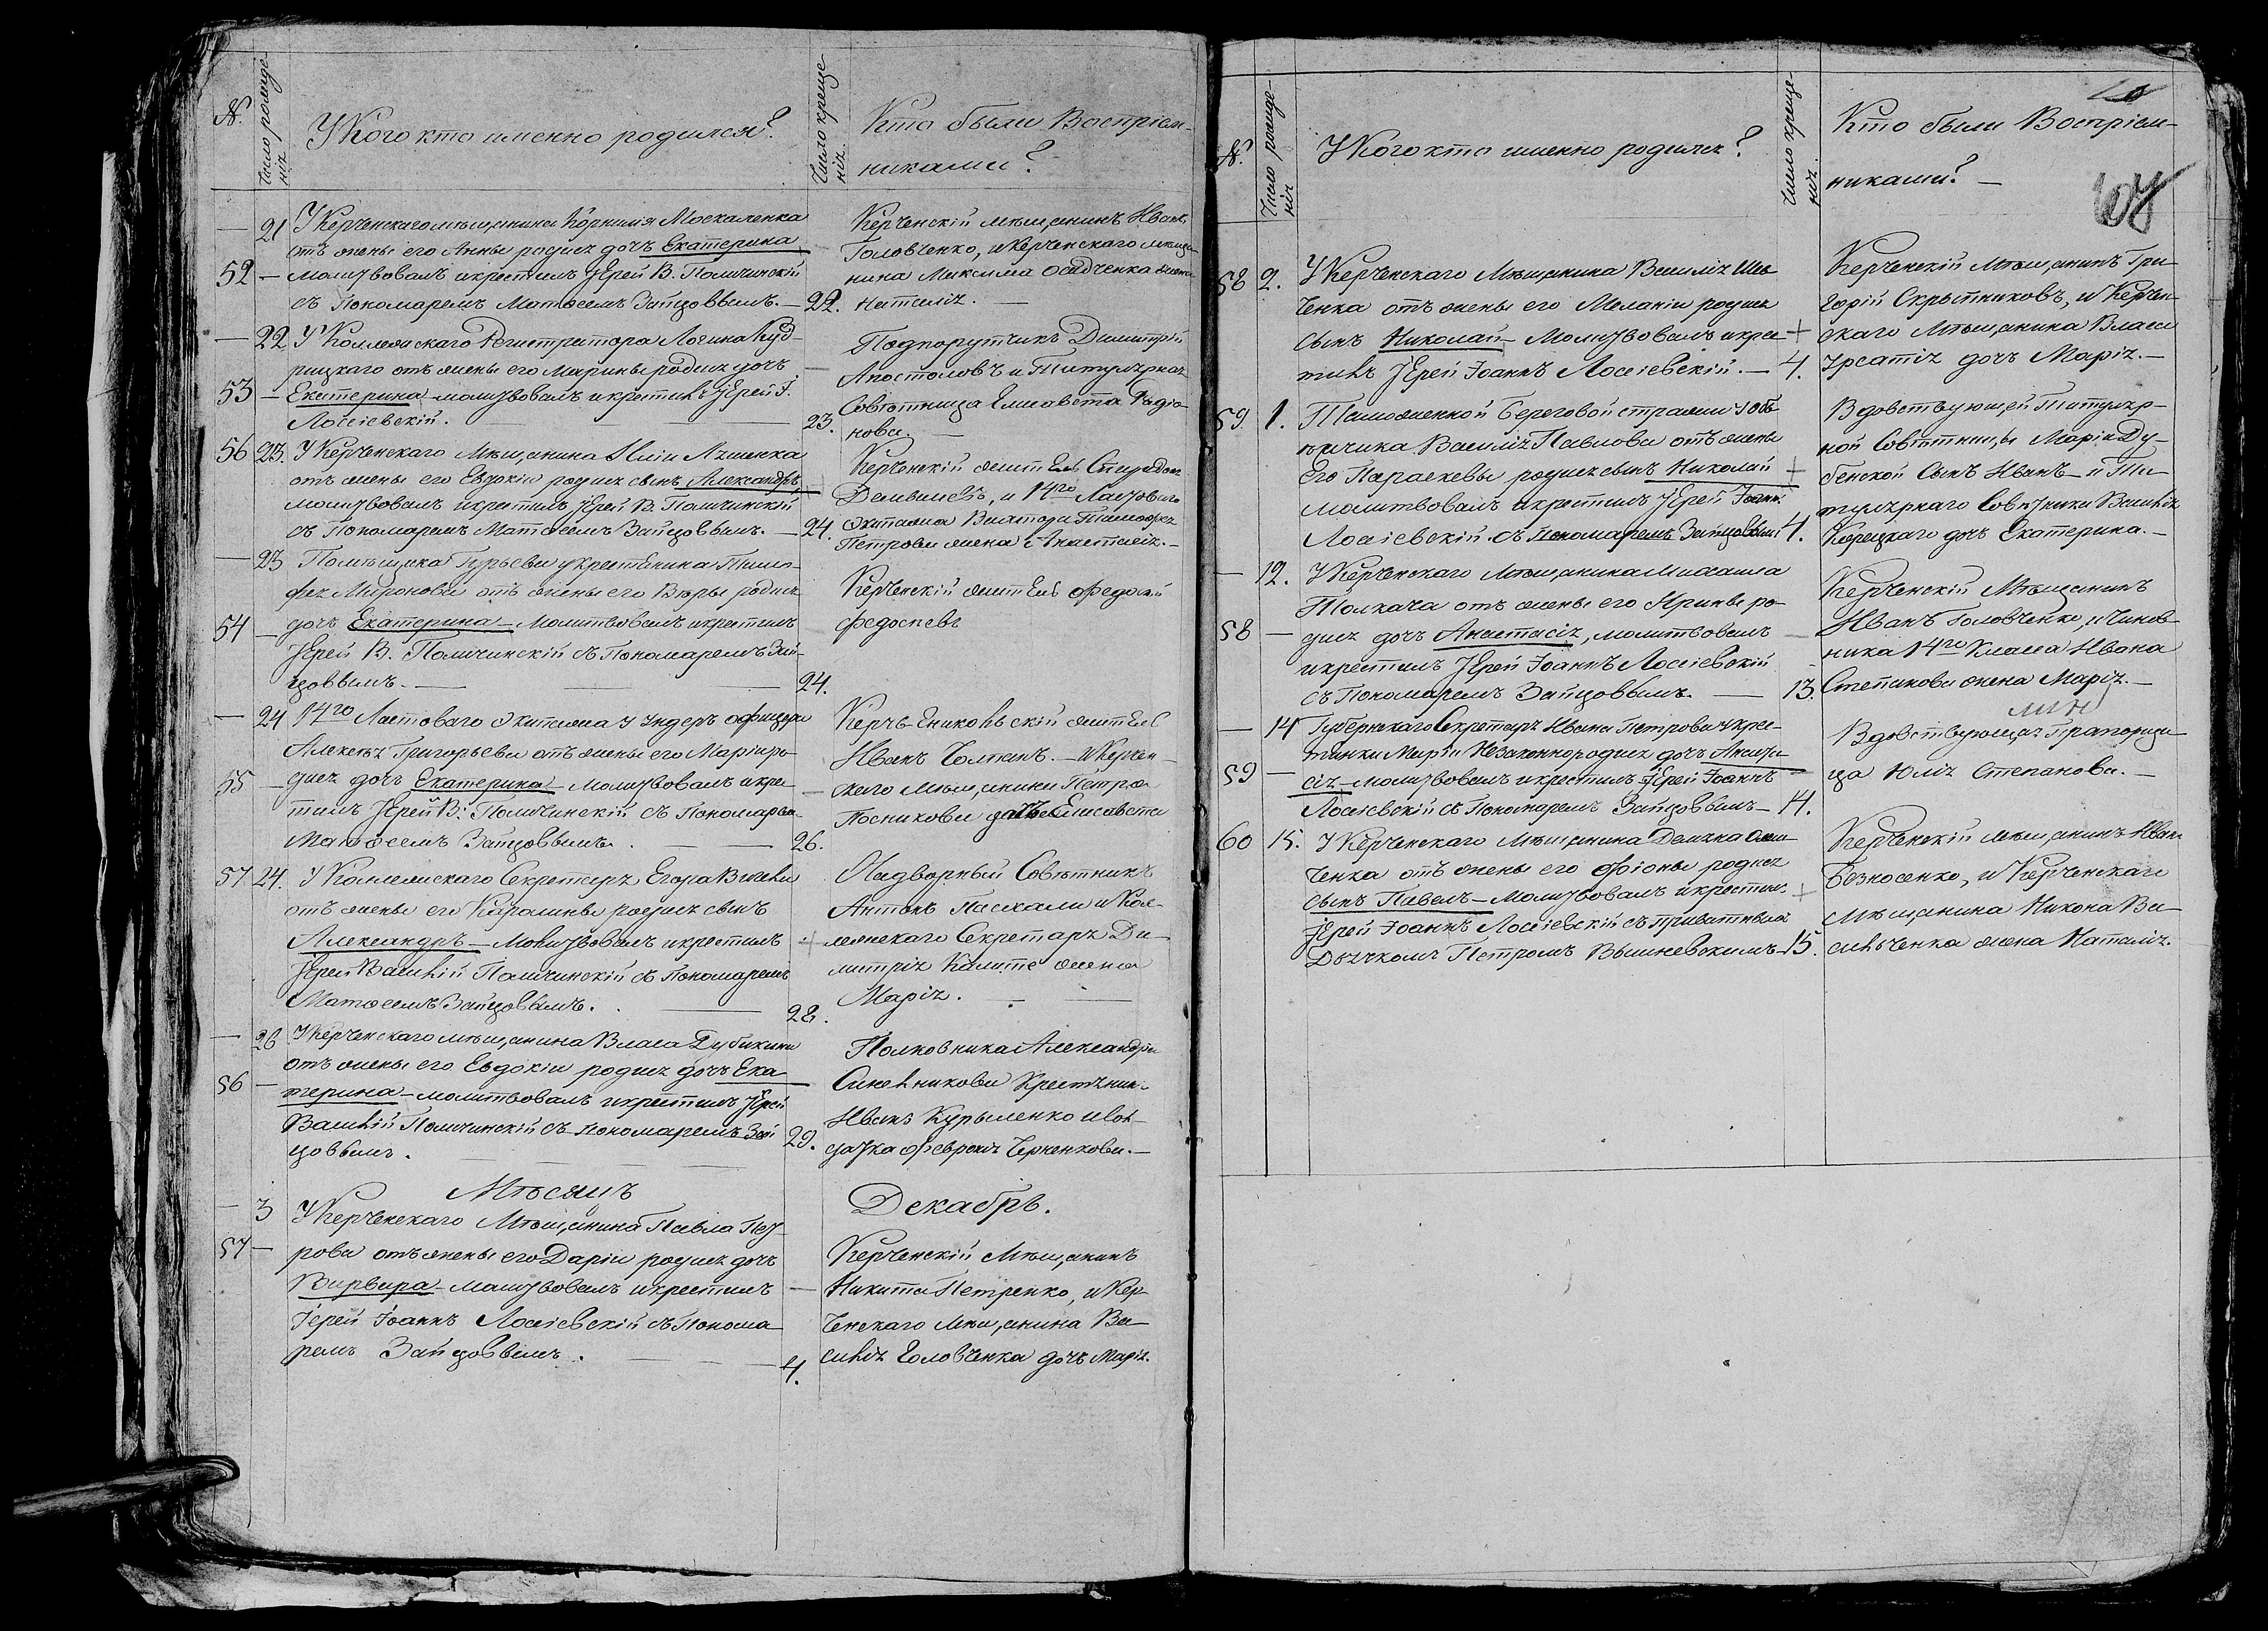 №.
Число рожде-
нія
У Кого кто именно родился?
Число креще-
нія.
Кто были Воспріем-
никами?
— 21 У Керченскаго мѣщанина Корнилія Москаленка
отъ жены его Анны родися дочь Екатерина
52 — молитвовалъ и крестилъ Іерей В. Помичинскій
съ Пономаремъ Матѳеемъ Зайцовымъ. — 22.
Керченскій мѣщанинъ Иванъ
Головченко, и Керченскаго мѣща-
нина Максима Осадченка жена
Наталія. —
— 22 У Коллежскаго Регистратора Логина Куд-
рицкаго отъ жены его Марины родися дочь
53 — Екатерина — молитвовалъ и крестилъ Іерей І.
Лосіевскій. — 23.
Подпорутчикъ Димитрій
Апостоловъ и Титулярная
Совѣтница Елисавета Радіо-
нова. —
56 23. У Керченскаго Мѣщанина Иліи Ляшенка
отъ жены его Евдокіи родися сынъ Александръ,
молитвовалъ и крестилъ Іерей В. Помичинскій
съ Пономаремъ Матѳеемъ Зайцовымъ. — 24.
Керченскій житель Спиридонъ
и 14го Ластоваго
Экипажа Вахтера Тимоѳея
Петрова жена Анастасія. —
— 23 Помѣщика Гурьева у крестьянина Тимо-
ѳея Миронова отъ жены его Варвары родися
54 — дочь Екатерина — Молитвовалъ и крестилъ
Іерей В. Помичинскій съ Пономаремъ Зай-
цовымъ. — 24.
Керченскій житель Ѳедосій
Ѳедосѣевъ
— 24 14го Ластоваго Экипажа у Ундеръ Офицера
Алексѣя Григорьева отъ жены его Маріи ро-
55 — дися дочь Екатерина — Молитвовалъ и кре-
стилъ Іерей В. Помичинскій съ Пономаремъ
Матѳеемъ Зайцовымъ. — 26.
Керчь-Еникольскій житель
Иванъ — и Керчен-
скаго Мѣщанина Петра
Посникова дочь Елисавета
57 24. У Коллежскаго Секретаря Егора
отъ жены его Каролины родися сынъ
Александръ — Молитвовалъ и крестилъ +
Іерей Василій Помичинскій съ Пономаремъ
Матѳеемъ Зайцовымъ. — 28.
Надворный Совѣтникъ
Антонъ Пасхали и Кол-
лежскаго Секретаря Ди-
митрія жена
Марія. —
— 26 У Керченскаго мѣщанина Власа Дубикина
отъ жены его Евдокіи родися дочь Ека-
56 — терина — молитвовалъ и крестилъ Іерей
Василій Помичинскій съ Пономаремъ Зай-
цовымъ. — 29.
Полковника Александра
Синельникова Крестьянинъ
Иванъ Курыленко и Сол-
датка Февронія Черненкова. —
Мѣсяцъ
Декабрь.
— 3 У Керченскаго Мѣщанина Павла Пет-
57 — рова отъ жены его Даріи родися дочь
Варвара — молитвовалъ и крестилъ —
Іерей Іоаннъ Лосіевскій съ Понома-
ремъ Зайцовымъ. — 4.
Керченскій Мѣщанинъ
Никита Петренко, и Кер-
ченскаго мѣщанина Ва-
силія Головченка дочь Марія.
№.
Число рожде-
нія
У Кого кто именно родился?
Число креще-
нія.
Кто были Воспріем-
никами? —
58 2. У Керченскаго Мѣщанина Василія Шев-
ченка отъ жены его Меланіи родися
сынъ Николай — Молитвовалъ и крес- +
тилъ Іерей Іоаннъ Лосіевскій. — 4.
Керченскій Мѣщанинъ Гри-
горій Скрытниковъ, и Керчен-
скаго Мѣщанина Власа
дочь Марія. —
59. 1. Таможенной Береговой стражи у объ-
ѣзчика Василія Павлова отъ жены
его Параскевы родися сынъ Николай +
молитвовалъ и крестилъ Іерей Іоаннъ
Лосіевскій съ Пономаремъ Зайцовымъ 4.
Вдовствующей Титуляр-
ной Совѣтницы Маріи Ду-
бенской Сынъ Иванъ — и Ти-
тулярнаго Совѣтника Василія
Корецкаго дочь Екатерина. —
— 12. У Керченскаго Мѣщанина Михаила
Толкача отъ жены его Ирины ро-
58 — дися дочь Анастасія, молитвовалъ —
и крестилъ Іерей Іоаннъ Лосіевскій
съ Пономаремъ Зайцовымъ. — 13.
Керченскій Мѣщанинъ
Иванъ Головченко, и Чинов-
ника 14го Класса Ивана
Степанова жена Марія. —
— 14 Губернскаго Секретаря Ивана Петрова у кре-
стьянки Маріи Незаконнорожд дочь Анаста-
59 — сія — молитвовалъ и крестилъ Іерей Іоаннъ
Лосіевскій съ Пономаремъ Зайцовымъ — 14.
Вдовствующая Прапорщи-
ца Юлія Степанова. —
60 15. У Керченскаго Мѣщанина Демяна
отъ жены его Ѳіоны родися
сынъ Павелъ — Молитвовалъ и крестилъ +
Іерей Іоаннъ Лосіевскій съ приватнымъ
Дьячкомъ Петромъ Вышневскимъ 15.
Керченскій мѣщанинъ Иванъ
Безносенко, и Керченскаго
Мѣщанина Никона Ва-
сильченка жена Наталія.